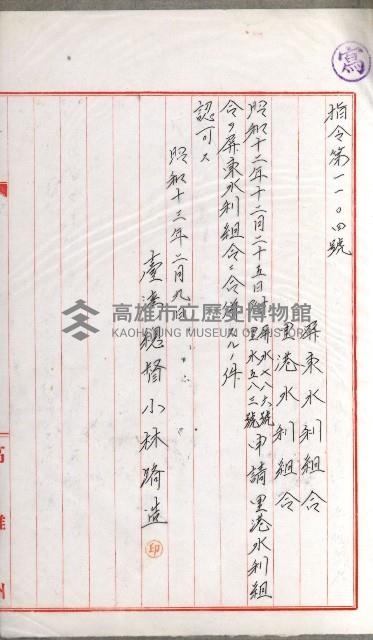 寫
指令第一一〇四號
屏東水利組合
里港水利組合
昭和十二年十二月二十五日附屏水七八六號里水五八三號申請里港水利組
合ヲ屏東水利組合ニ合併スルノ件
認可ス
昭和十三年二月九日
臺灣總督小林躋造
印
高雄州
高雄市立歷史博物館
KAOHSIUNG MUSEUM OF HISTORY